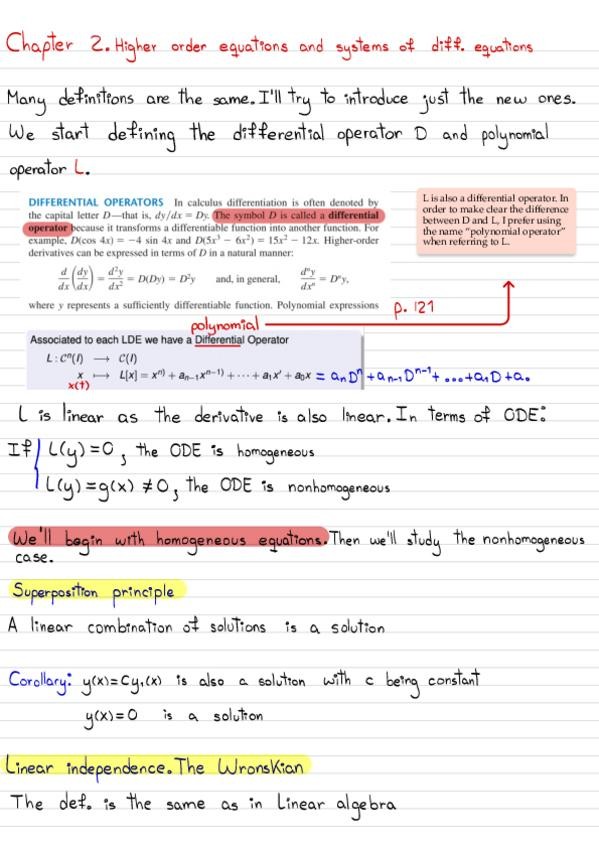 Chapter 2. Higher order equations and systems of diff. equations
Many definitions are the same. I'll try to introduce just the new ones.
We start defining the differential operator D and polynomial
operator L.
DIFFERENTIAL OPERATORS In calculus differentiation is often denoted by
the capital letter D—that is, dy/dx = Dy. The symbol D is called a differential
operator because it transforms a differentiable function into another function. For
example, D(cos 4x) = −4 sin 4x and D(5x³ − 6x²) = 15x² − 12x. Higher-order
derivatives can be expressed in terms of D in a natural manner:
d/dx (dy/dx) = d²y/dx² = D(Dy) = D²y and, in general, dⁿy/dxⁿ = Dⁿy,
where y represents a sufficiently differentiable function. Polynomial expressions
L is also a differential operator. In
order to make clear the difference
between D and L, I prefer using
the name "polynomial operator"
when referring to L.
p. 121
polynomial
Associated to each LDE we have a Differential Operator
L : Cⁿ(I) → C(I)
x ↦ L[x] = xⁿ⁾ + aₙ₋₁xⁿ⁻¹⁾ + ··· + a₁x' + a₀x = aₙDⁿ + aₙ₋₁Dⁿ⁻¹ + ... + a₁D + a₀
x(t)
L is linear as the derivative is also linear. In terms of ODE:
If { L(y) = 0, the ODE is homogeneous
L(y) = g(x) ≠ 0, the ODE is nonhomogeneous
We'll begin with homogeneous equations. Then we'll study the nonhomogeneous
case.
Superposition principle
A linear combination of solutions is a solution
Corollary: y(x) = Cy₁(x) is also a solution with c being constant
y(x) = 0 is a solution
Linear independence. The Wronskian
The def. is the same as in Linear algebra